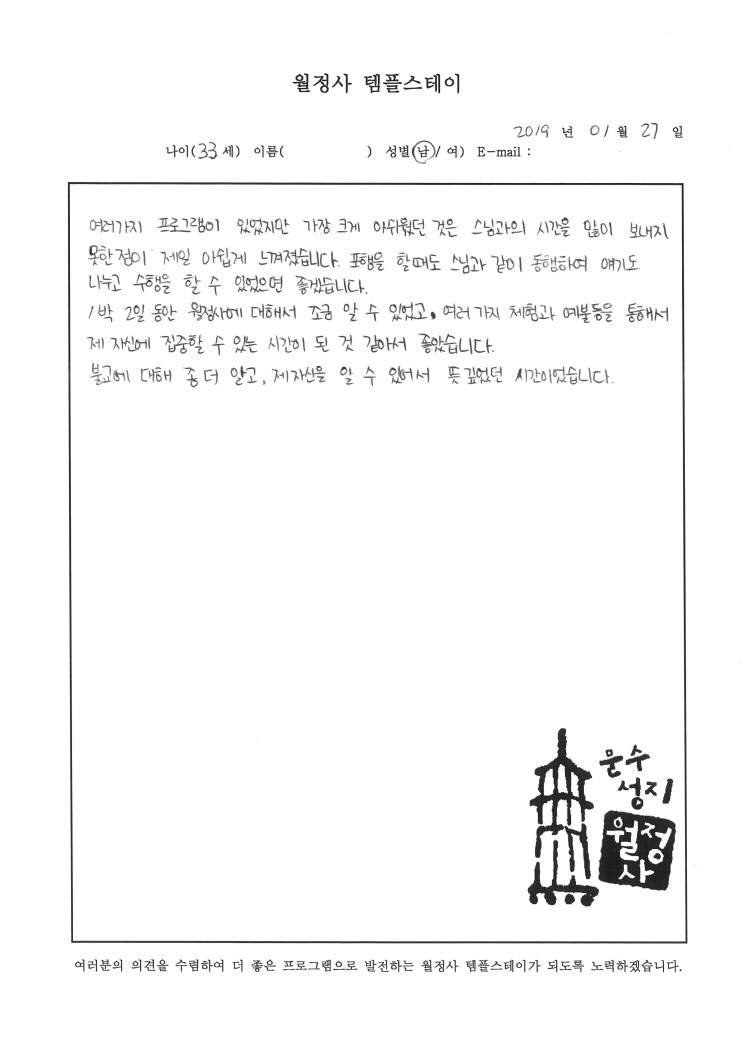 월정사 템플스테이
2019 년 01 월 27 일
나이(33 세) 이름( ) 성별(남/ 여) E-mail :
여러가지 프로그램이 있었지만 가장 크게 아쉬웠던 것은 스님과의 시간을 많이 보내지
못한점이 제일 아쉽게 느껴졌습니다. 포행을 할때도 스님과 같이 동행하여 얘기도
나누고 수행을 할 수 있었으면 좋겠습니다.
1박 2일 동안 월정사에 대해서 조금 알 수 있었고, 여러 가지 체험과 예불등을 통해서
제 자신에 집중할 수 있는 시간이 된 것 같아서 좋았습니다.
불교에 대해 좀 더 알고, 제자신을 알 수 있어서 뜻 깊었던 시간이었습니다.
문수
성지
월정
사
여러분의 의견을 수렴하여 더 좋은 프로그램으로 발전하는 월정사 템플스테이가 되도록 노력하겠습니다.